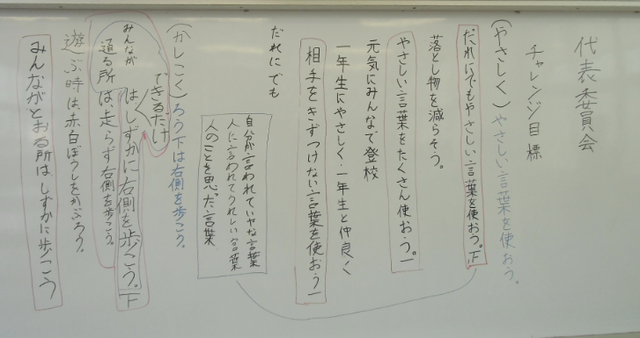 代表委員会
チャレンジ目標
(やさしく)やさしい言葉を使おう。
だれにでもやさしい言葉を使おう。下
落とし物を減らそう。
やさしい言葉をたくさん使おう。一
元気にみんなで登校
一年生にやさしく・一年生と仲良く
相手をきずつけない言葉を使おう一
だれにでも
自分が言われていやな言葉
人に言われてうれしい言葉
人のことを思った言葉
(かしこく)ろう下は右側を歩こう。
できるだけ
はしずかに右側を歩こう。下
みんなが
通る所は、走らず右側を歩こう。
遊ぶ時は、赤白ぼうしをかぶろう。
みんながとおる所はしずかに歩こう